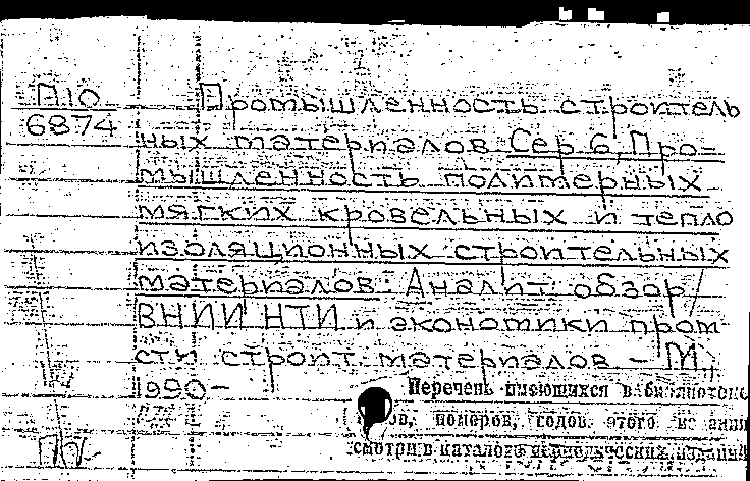 П10
6874
Промышленность строитель
ных материалов. Сер 6, Про-
мышленность полимерных
мягких кровельных и тепло
изоляционных строительных
материалов. Аналит. обзор /
ВНИИ НТИ и экономики пром-
сти строит. материалов – М.,
1990-
Перечень имеющихся в библиотеке
номеров, годов этого
смотри в каталоге периодических изданий